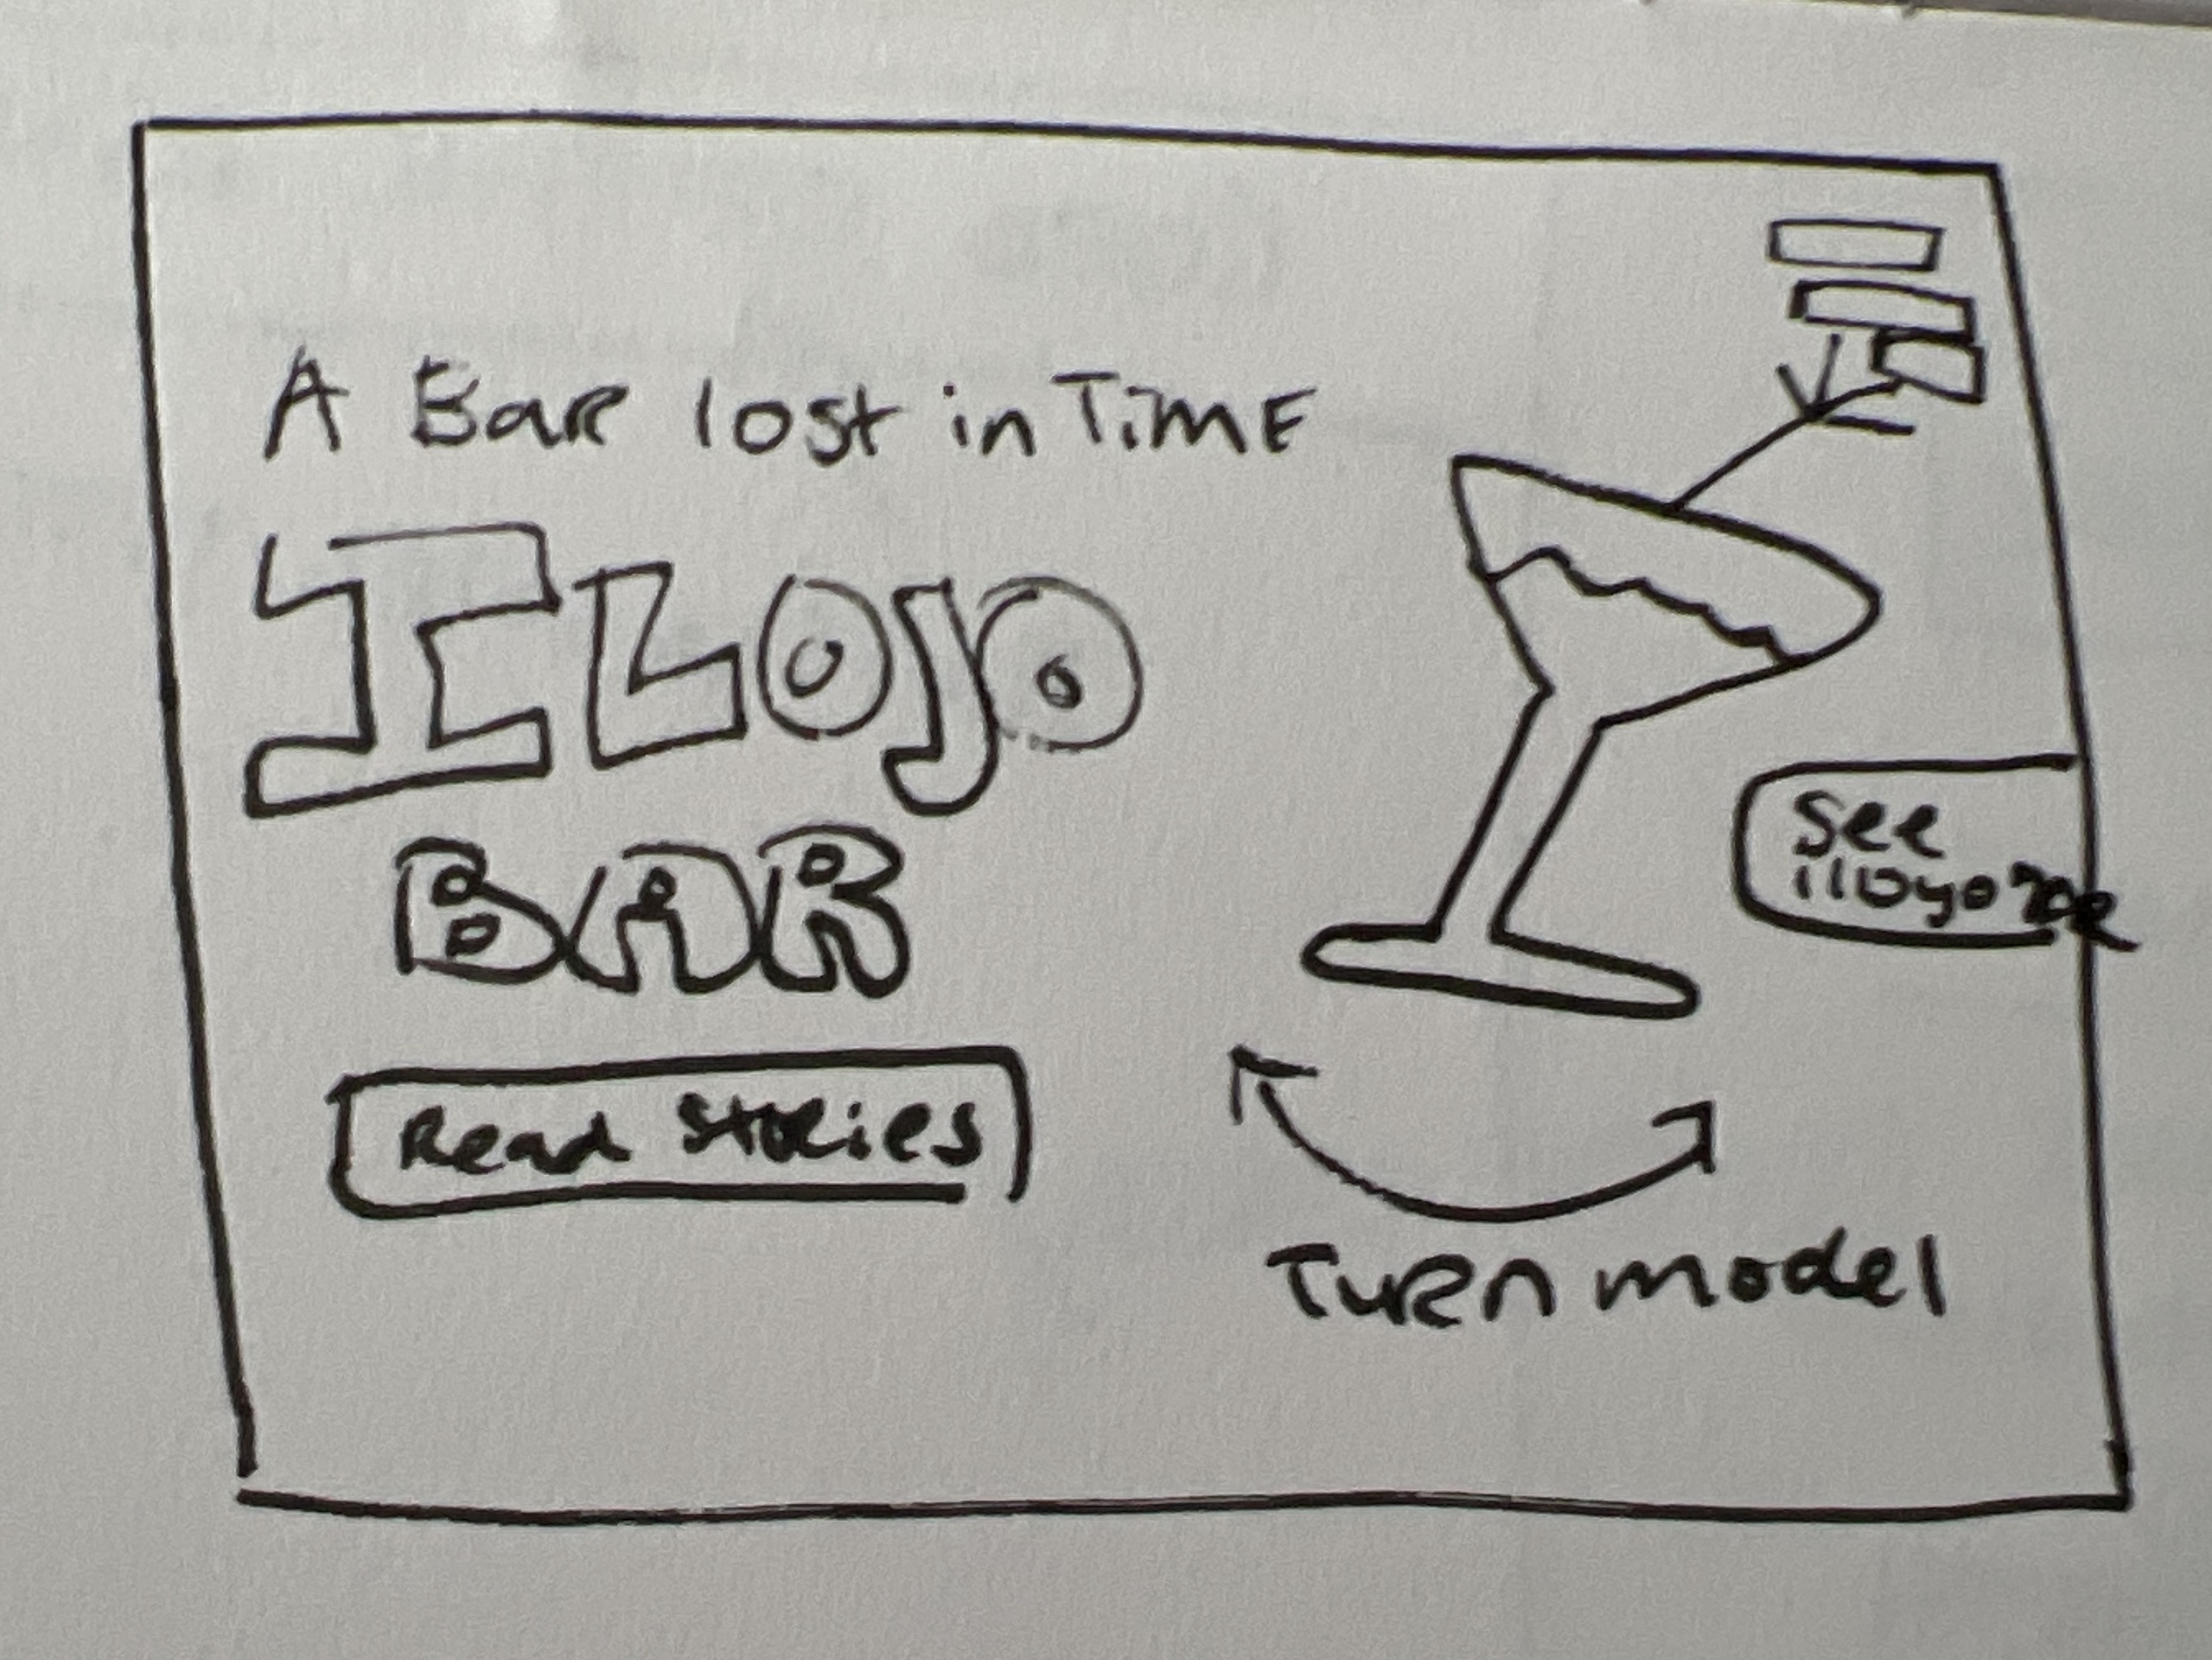 A Bar lost in Time
ILOJO
BAR
Read Stories
See
Turn model